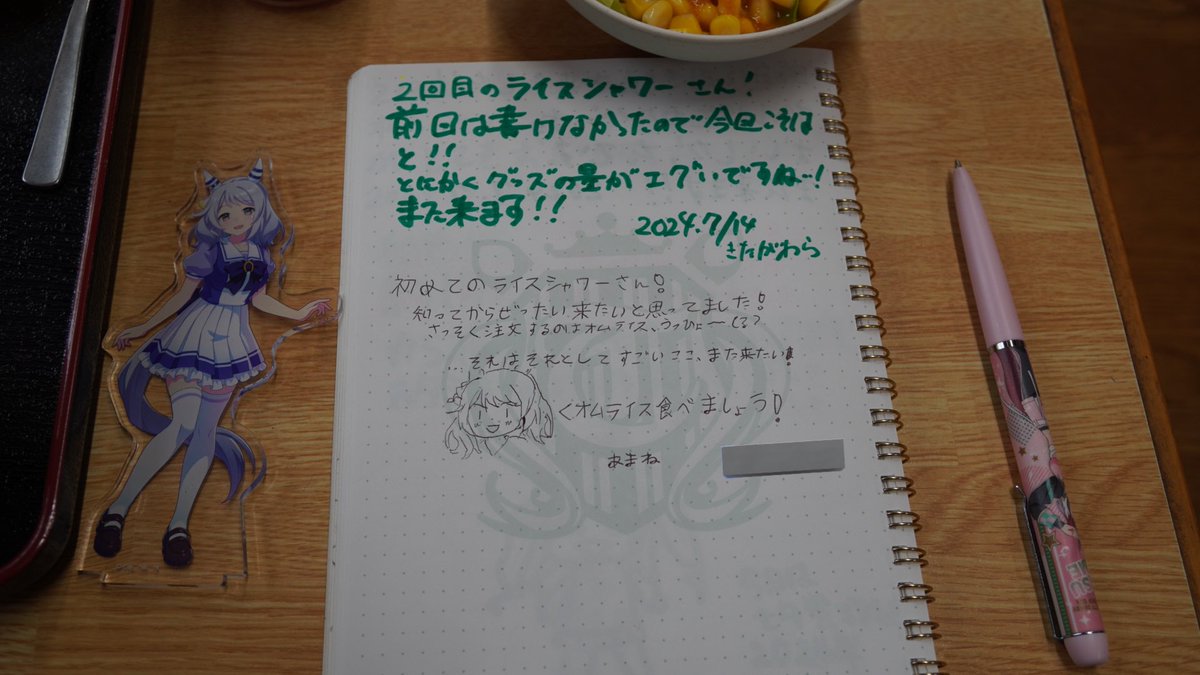 2回目のライスシャワーさん!
前日は書けなかったので今回こそは
と!!
とにかくグッズの量がエグいですね…!
また来ます!!
2024.7/14
きたがわら
初めてのライスシャワーさん!
知ってからぜったい来たいと思ってました!
さっそく注文するのはオムライス、うっかよ〜しる?
…それはそれとしてすごいここ、また来たい!
<オムライス食べましょう!
あまね